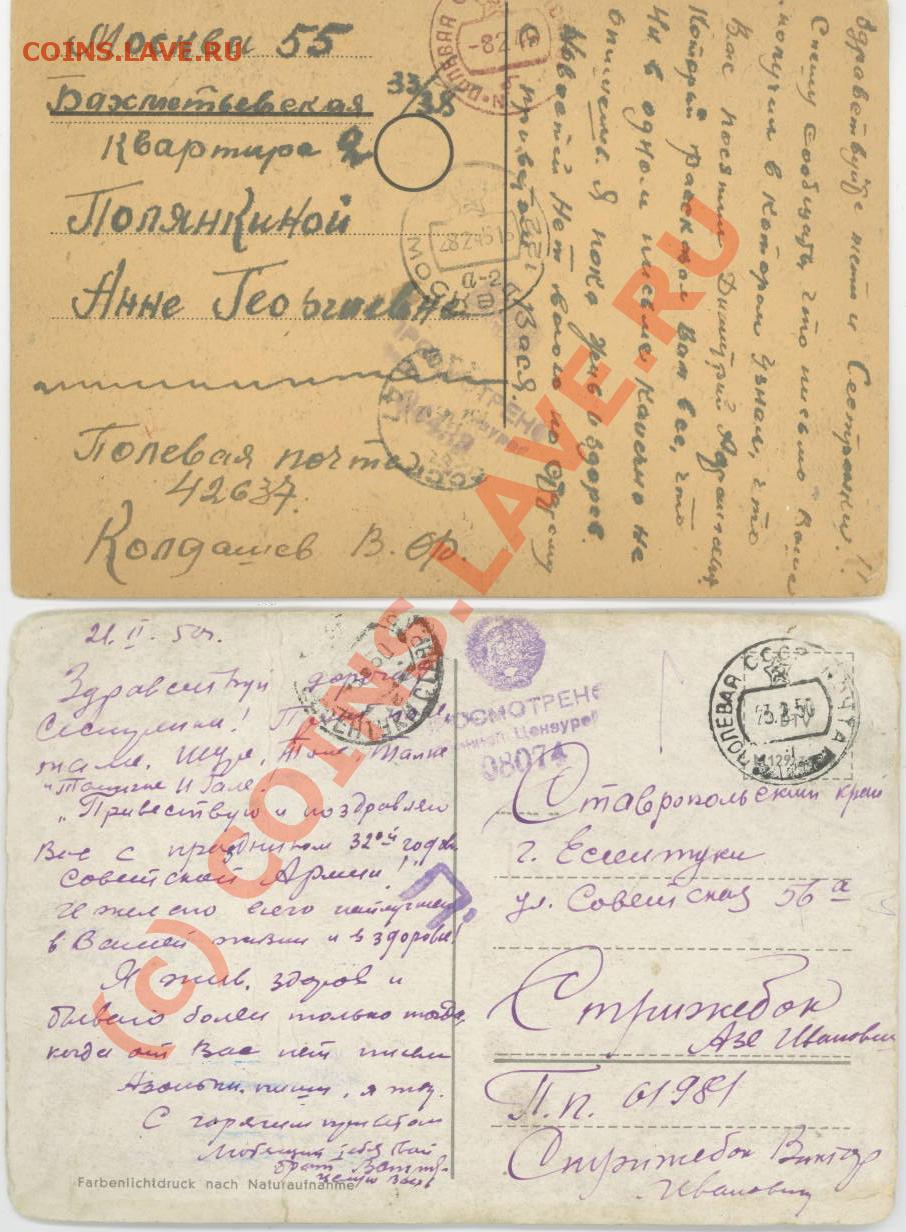 COINS.LAVE.RU
Москва 55
Бахметьевская 33/38
Квартира 2
Полянкиной
Анне Георгиевне
Полевая почта
42637.
Колдашев В. Ф.
-8 2 45
28 2 45 15
ПРОСМОТРЕНО
Здравствуйте тетя и Сестрёнки!!
Спешу сообщить, что письмо Ваше
получил в котором узнал, что
Вас посетил Дмитрий
Который рассказал Вам все, что
Ни в одном письме Конечно не
опишешь. Я пока жив и здоров.
Новостей Нет
С приветом Вася.
(c) COINS.LAVE.RU
21. II. 50г.
Здравствуй дорогая
Сестричка!
маме, Шуре, Толе,
и Гале.
„Приветствую и поздравляю
Вас с праздником 32ой годов.
Советской Армии!"
И желаю всего наилучшего
в Вашей жизни и в здоровье!
Я жив, здоров и
бываю болен только тогда,
когда от Вас нет писем
Азонька, пиши, я жду.
С горячим приветом
Любящий тебя твой
брат
Farbenlichtdruck nach Naturaufnahme
ПРОСМОТРЕНО
Военной Цензурой
08074
ПОЛЕВАЯ ПОЧТА
СССР
23.2.50
П.
Ставропольский край
г. Ессентуки
ул. Советская 56 а
Стрижебок
Азе Ивановне
П.п. 01981
Стрижебок Виктор
Иванович